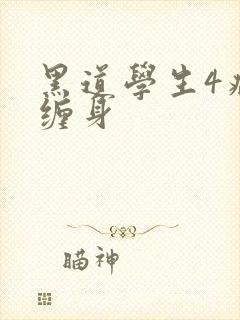 黑道學生4病
缠身
瞄神